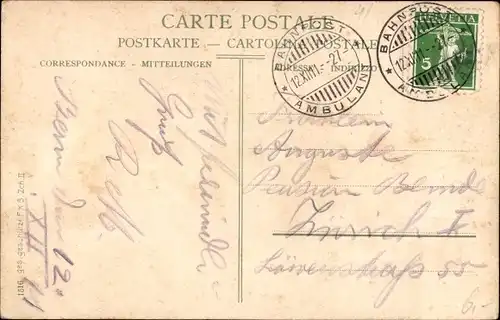 CARTE POSTALE
POSTKARTE - CARTOLINA POSTALE
CORRESPONDANCE - MITTEILUNGEN
ADRESSE - INDIRIZZO
BAHNPOST
12.XII.11.-2
AMBULANT
BAHNPOST
12.XII.11.-2
AMBULANT
HELVETIA
5
Fräulein
Auguste
Pension
Zürich I
Löwenstraße 55
Mit freundl.
Gruß
Bern den 12.
XII 11
1816
6,-